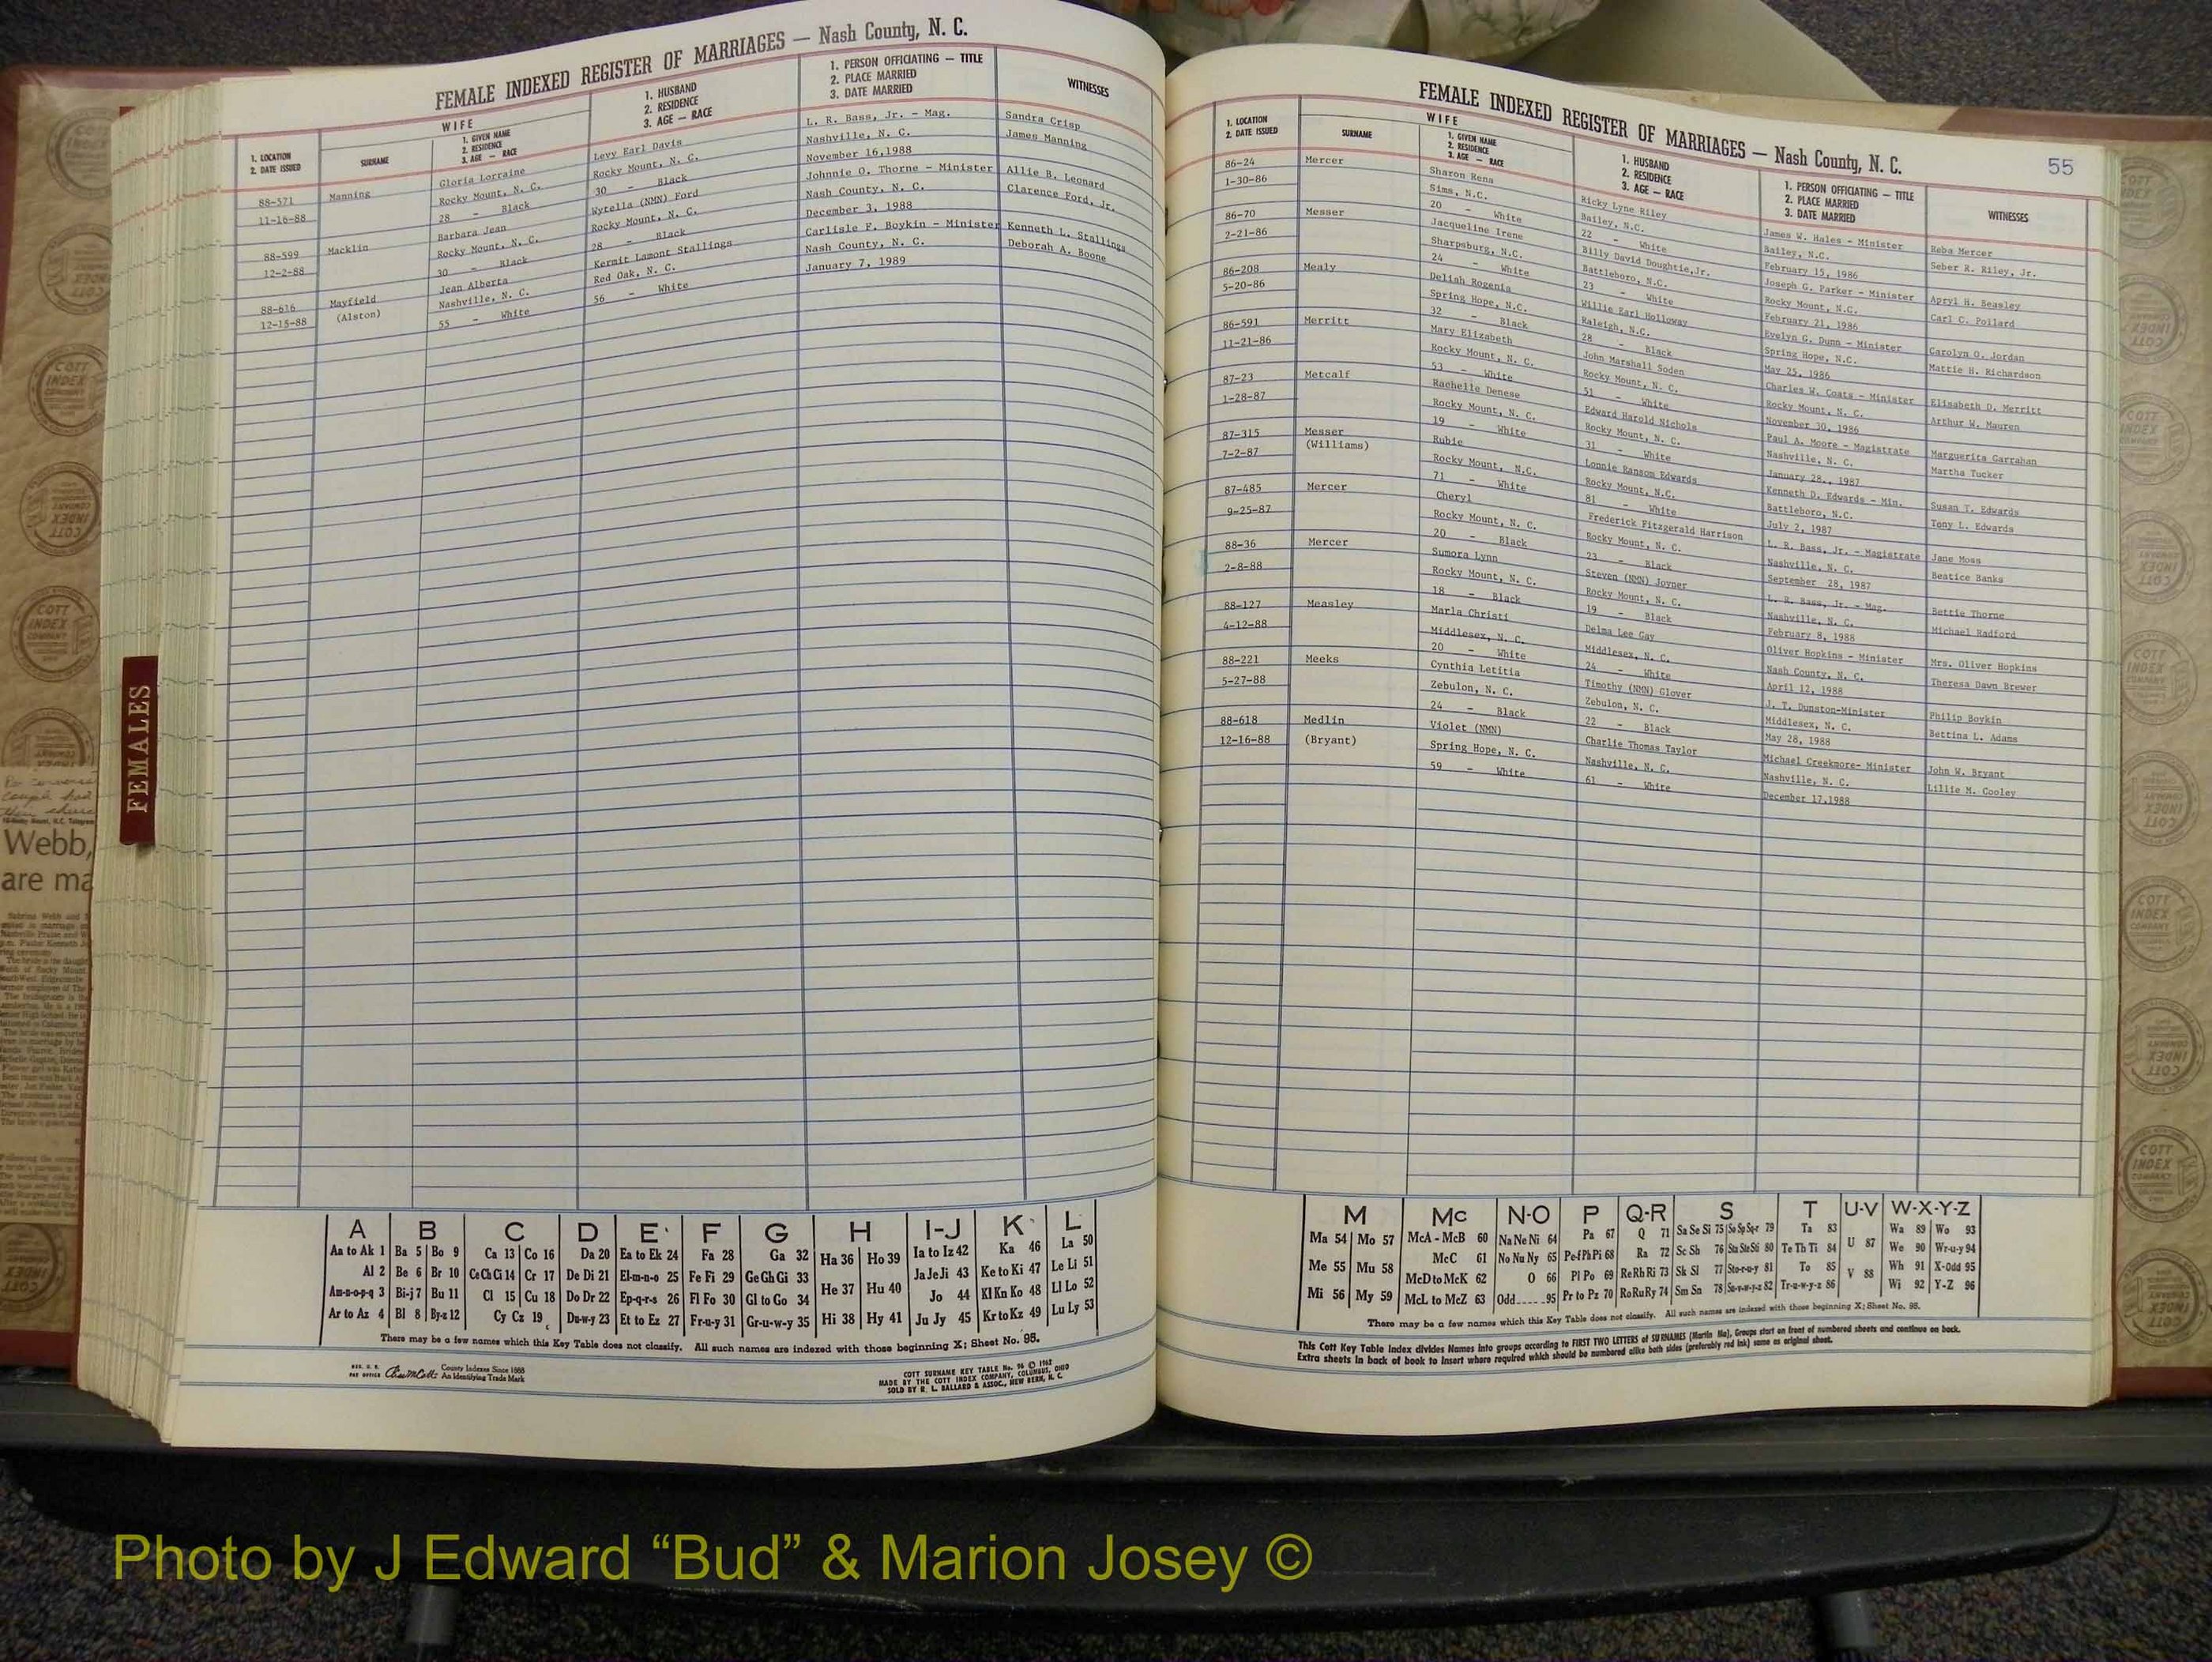 FEMALE INDEXED REGISTER OF MARRIAGES — Nash County, N. C.
1. LOCATION
2. DATE ISSUED
SURNAME
WIFE
1. GIVEN NAME
2. RESIDENCE
3. AGE — RACE
1. HUSBAND
2. RESIDENCE
3. AGE — RACE
1. PERSON OFFICIATING — TITLE
2. PLACE MARRIED
3. DATE MARRIED
WITNESSES
88-571 Manning Gloria Lorraine Levy Earl Davis L. R. Bass, Jr. - Mag. Sandra Crisp
11-16-88 Rocky Mount, N. C. Rocky Mount, N. C. Nashville, N. C. James Manning
28 - Black 30 - Black November 16,1988
88-599 Macklin Barbara Jean Wyrella (NMN) Ford Johnnie O. Thorne - Minister Allie B. Leonard
12-2-88 Rocky Mount, N. C. Rocky Mount, N. C. Nash County, N. C. Clarence Ford, Jr.
30 - Black 28 - Black December 3, 1988
88-616 Mayfield Jean Alberta Kermit Lamont Stallings Carlisle F. Boykin - Minister Kenneth L. Stallings
12-15-88 (Alston) Nashville, N. C. Red Oak, N. C. Nash County, N. C. Deborah A. Boone
55 - White 56 - White January 7, 1989
FEMALES
Webb,
are ma
A B C D E F G H I-J K L
Aa to Ak 1 Ba 5 Bo 9 Ca 13 Co 16 Da 20 Ea to Ek 24 Fa 28 Ga 32 Ha 36 Ho 39 Ia to Iz 42 Ka 46 La 50
Al 2 Be 6 Br 10 Ce Ch Ci 14 Cr 17 De Di 21 El-m-n-o 25 Fe Fi 29 Ge Gh Gi 33 He 37 Hu 40 Ja Je Ji 43 Ke to Ki 47 Le Li 51
Am-n-o-p-q 3 Bi-j 7 Bu 11 Cl 15 Cu 18 Do Dr 22 Ep-q-r-s 26 Fl Fo 30 Gl to Go 34 Hi 38 Hy 41 Jo 44 Kl Kn Ko 48 Ll Lo 52
Ar to Az 4 Bl 8 By-z 12 Cy Cz 19 Du-w-y 23 Et to Ez 27 Fr-u-y 31 Gr-u-w-y 35 Ju Jy 45 Kr to Kz 49 Lu Ly 53
There may be a few names which this Key Table does not classify. All such names are indexed with those beginning X; Sheet No. 95.
County Indexes Since 1888
An Identifying Trade Mark
COTT SURNAME KEY TABLE No. 96 © 1962
MADE BY THE COTT INDEX COMPANY, COLUMBUS, OHIO
SOLD BY R. L. BALLARD & ASSOC., NEW BERN, N. C.
FEMALE INDEXED REGISTER OF MARRIAGES — Nash County, N. C.
55
1. LOCATION
2. DATE ISSUED
SURNAME
WIFE
1. GIVEN NAME
2. RESIDENCE
3. AGE — RACE
1. HUSBAND
2. RESIDENCE
3. AGE — RACE
1. PERSON OFFICIATING — TITLE
2. PLACE MARRIED
3. DATE MARRIED
WITNESSES
86-24 Mercer Sharon Rena Ricky Lyne Riley James W. Hales - Minister Reba Mercer
1-30-86 Sims, N.C. Bailey, N.C. Bailey, N.C. Seber R. Riley, Jr.
20 - White 22 - White February 15, 1986
86-70 Messer Jacqueline Irene Billy David Doughtie,Jr. Joseph G. Parker - Minister Apryl H. Beasley
2-21-86 Sharpsburg, N.C. Battleboro, N.C. Rocky Mount, N.C. Carl C. Pollard
24 - White 23 - White February 21, 1986
86-208 Mealy Deliah Rogenia Willie Earl Holloway Evelyn G. Dunn - Minister Carolyn O. Jordan
5-20-86 Spring Hope, N.C. Raleigh, N.C. Spring Hope, N.C. Mattie H. Richardson
32 - Black 28 - Black May 25, 1986
86-591 Merritt Mary Elizabeth John Marshall Soden Charles W. Coats - Minister Elisabeth D. Merritt
11-21-86 Rocky Mount, N. C. Rocky Mount, N. C. Rocky Mount, N. C. Arthur W. Mauren
53 - White 51 - White November 30, 1986
87-23 Metcalf Rachelle Denese Edward Harold Nichols Paul A. Moore - Magistrate Marguerita Garrahan
1-28-87 Rocky Mount, N. C. Rocky Mount, N. C. Nashville, N. C. Martha Tucker
19 - White 31 - White January 28., 1987
87-315 Messer Rubie Lonnie Ransom Edwards Kenneth D. Edwards - Min. Susan T. Edwards
7-2-87 (Williams) Rocky Mount, N.C. Rocky Mount, N.C. Battleboro, N.C. Tony L. Edwards
71 - White 81 - White July 2, 1987
87-485 Mercer Cheryl Frederick Fitzgerald Harrison L. R. Bass, Jr. - Magistrate Jane Moss
9-25-87 Rocky Mount, N. C. Rocky Mount, N. C. Nashville, N. C. Beatice Banks
20 - Black 23 - Black September 28, 1987
88-36 Mercer Sumora Lynn Steven (NMN) Joyner L. R. Bass, Jr. - Mag. Bettie Thorne
2-8-88 Rocky Mount, N. C. Rocky Mount, N. C. Nashville, N. C. Michael Radford
18 - Black 19 - Black February 8, 1988
88-127 Measley Marla Christi Delma Lee Gay Oliver Hopkins - Minister Mrs. Oliver Hopkins
4-12-88 Middlesex, N. C. Middlesex, N. C. Nash County, N. C. Theresa Dawn Brewer
20 - White 24 - White April 12, 1988
88-221 Meeks Cynthia Letitia Timothy (NMN) Glover J. T. Dunston-Minister Philip Boykin
5-27-88 Zebulon, N. C. Zebulon, N. C. Middlesex, N. C. Bettina L. Adams
24 - Black 22 - Black May 28, 1988
88-618 Medlin Violet (NMN) Charlie Thomas Taylor Michael Creekmore- Minister John W. Bryant
12-16-88 (Bryant) Spring Hope, N. C. Nashville, N. C. Nashville, N. C. Lillie M. Cooley
59 - White 61 - White December 17,1988
M Mc N-O P Q-R S T U-V W-X-Y-Z
Ma 54 Mo 57 McA - McB 60 Na Ne Ni 64 Pa 67 Q 71 Sa Se Si 75 So Sp Sq-r 79 Ta 83 U 87 Wa 89 Wo 93
Me 55 Mu 58 McC 61 No Nu Ny 65 Pe-f Ph Pi 68 Ra 72 Sc Sh 76 Sta Ste Sti 80 Te Th Ti 84 V 88 We 90 Wr-u-y 94
Mi 56 My 59 McD to McK 62 O 66 Pl Po 69 Re Rh Ri 73 Sk Sl 77 Sto-r-u-y 81 To 85 Wh 91 X-Odd 95
McL to McZ 63 Odd.....95 Pr to Pz 70 Ro Ru Ry 74 Sm Sn 78 Su-v-w-y-z 82 Tr-u-w-y-z 86 Wi 92 Y-Z 96
There may be a few names which this Key Table does not classify. All such names are indexed with those beginning X; Sheet No. 95.
This Cott Key Table Index divides Names into groups according to FIRST TWO LETTERS of SURNAMES (Martin Ma), Groups start on front of numbered sheets and continue on back.
Extra sheets in back of book to insert where required which should be numbered alike both sides (preferably red ink) same as original sheet.
Photo by J Edward “Bud” & Marion Josey ©